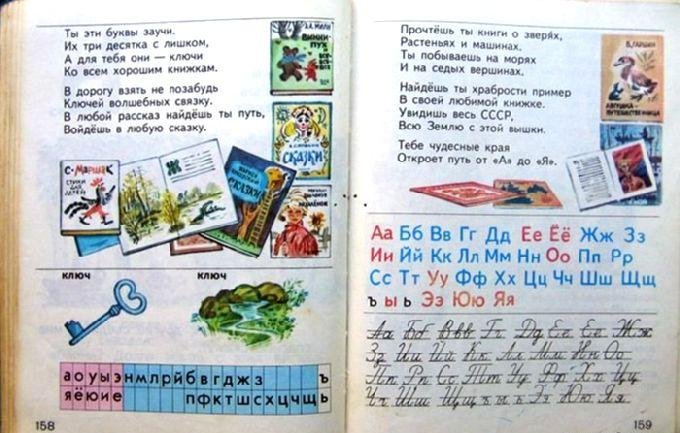 Ты эти буквы заучи.
Их три десятка с лишком,
А для тебя они — ключи
Ко всем хорошим книжкам.
В дорогу взять не позабудь
Ключей волшебных связку.
В любой рассказ найдёшь ты путь,
Войдёшь в любую сказку.
А. МИЛН
ВИННИ-
ПУХ
СКАЗКИ
С. МАРШАК
СТИХИ
ДЛЯ
ДЕТЕЙ
СКАЗКИ
КЛЮЧ КЛЮЧ
а о у ы э н м л р й б в г д ж з ъ
я ё ю и е п ф к т ш с х ц ч щ ь
158
Прочтёшь ты книги о зверях,
Растеньях и машинах.
Ты побываешь на морях
И на седых вершинах.
Найдёшь ты храбрости пример
В своей любимой книжке.
Увидишь весь СССР,
Всю Землю с этой вышки.
Тебе чудесные края
Откроет путь от «А» до «Я».
В. ГАРШИН
ЛЯГУШКА-
ПУТЕШЕСТВЕННИЦА
Аа Бб Вв Гг Дд Ее Ёё Жж Зз
Ии Йй Кк Лл Мм Нн Оо Пп Рр
Сс Тт Уу Фф Хх Цц Чч Шш Щщ
ъ ы ь Ээ Юю Яя
Аа Бб Вв Гг Дд Ее Ёё Жж
Зз Ии Йй Кк Лл Мм Нн Оо
Пп Рр Сс Тт Уу Фф Хх Цц
Чч Шш Щщ ъ ы ь Ээ Юю Яя
159